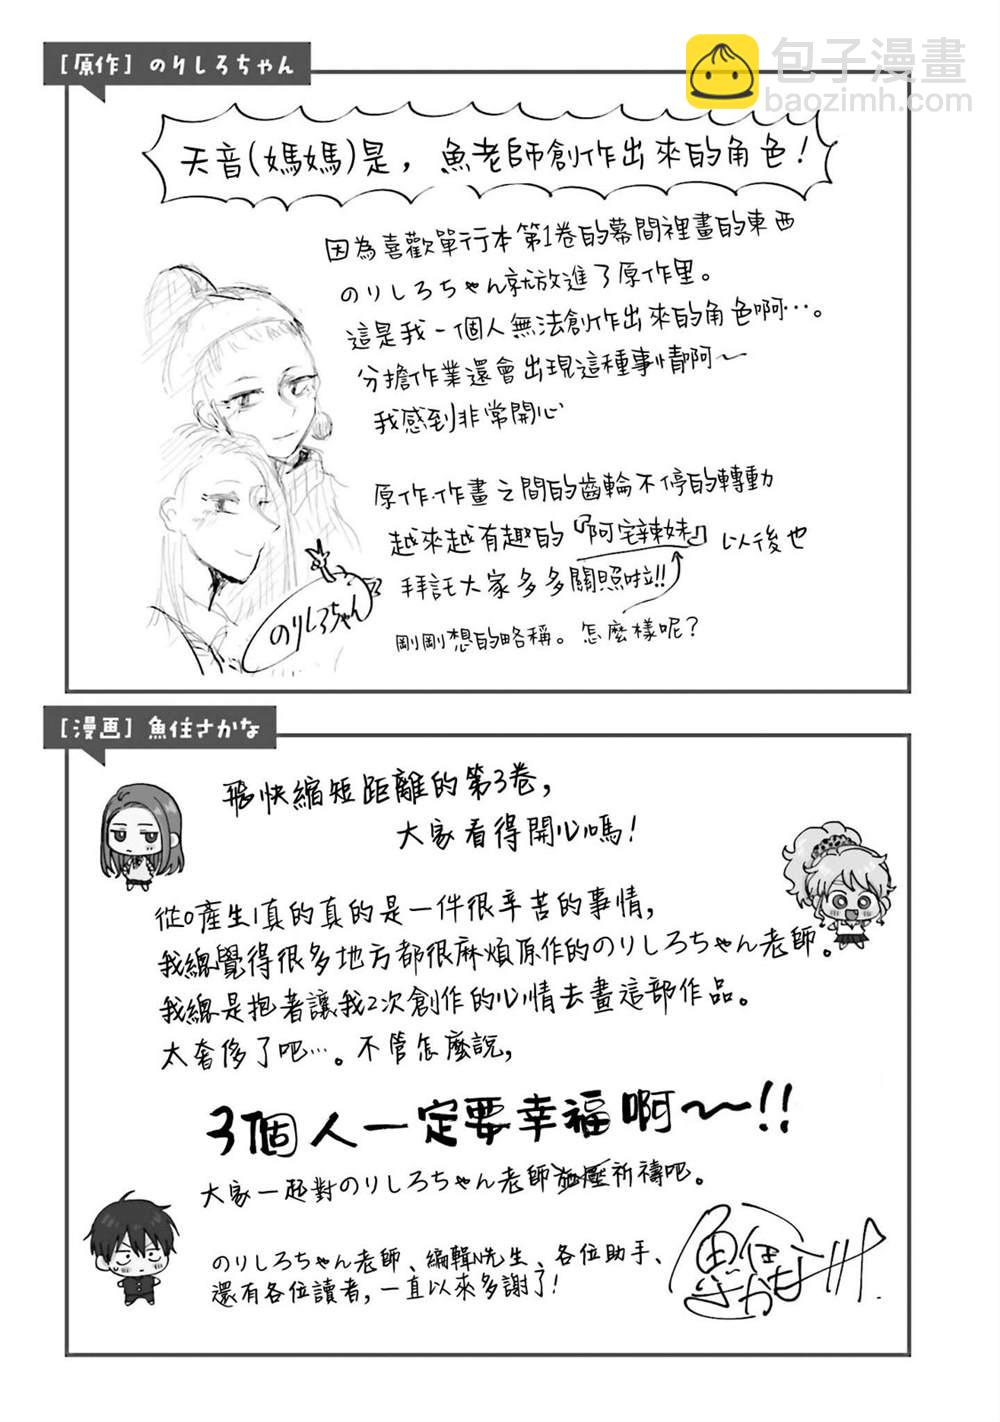 包子漫畫
baozimh.com
[原作] のりしろちゃん
天音(媽媽)是，魚老師創作出來的角色！
因為喜歡單行本第1卷的幕間裡畫的東西
のりしろちゃん就放進了原作里。
這是我一個人無法創作出來的角色啊…。
分擔作業還會出現這種事情啊～
我感到非常開心
原作作畫之間的齒輪不停的轉動
越來越有趣的『阿宅辣妹』以後也
拜託大家多多關照啦!!
剛剛想的略稱。怎麼樣呢？
のりしろちゃん
[漫画] 魚住さかな
飛快縮短距離的第3卷，
大家看得開心嗎！
從0產生1真的真的是一件很辛苦的事情，
我總覺得很多地方都很麻煩原作的のりしろちゃん老師。
我總是抱著讓我2次創作的心情去畫這部作品。
太奢侈了吧…。不管怎麼說，
3個人一定要幸福啊～～!!
大家一起對のりしろちゃん老師施壓祈禱吧。
のりしろちゃん老師、編輯N先生、各位助手、
還有各位讀者，一直以來多謝了！
魚住
さかな